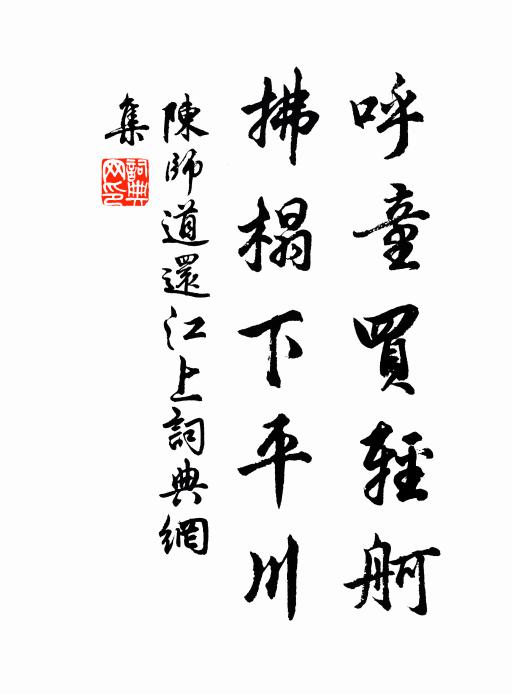 呼童買輕舸
拂榻下平川
陳師道還江上詞典網
集
詞典網印